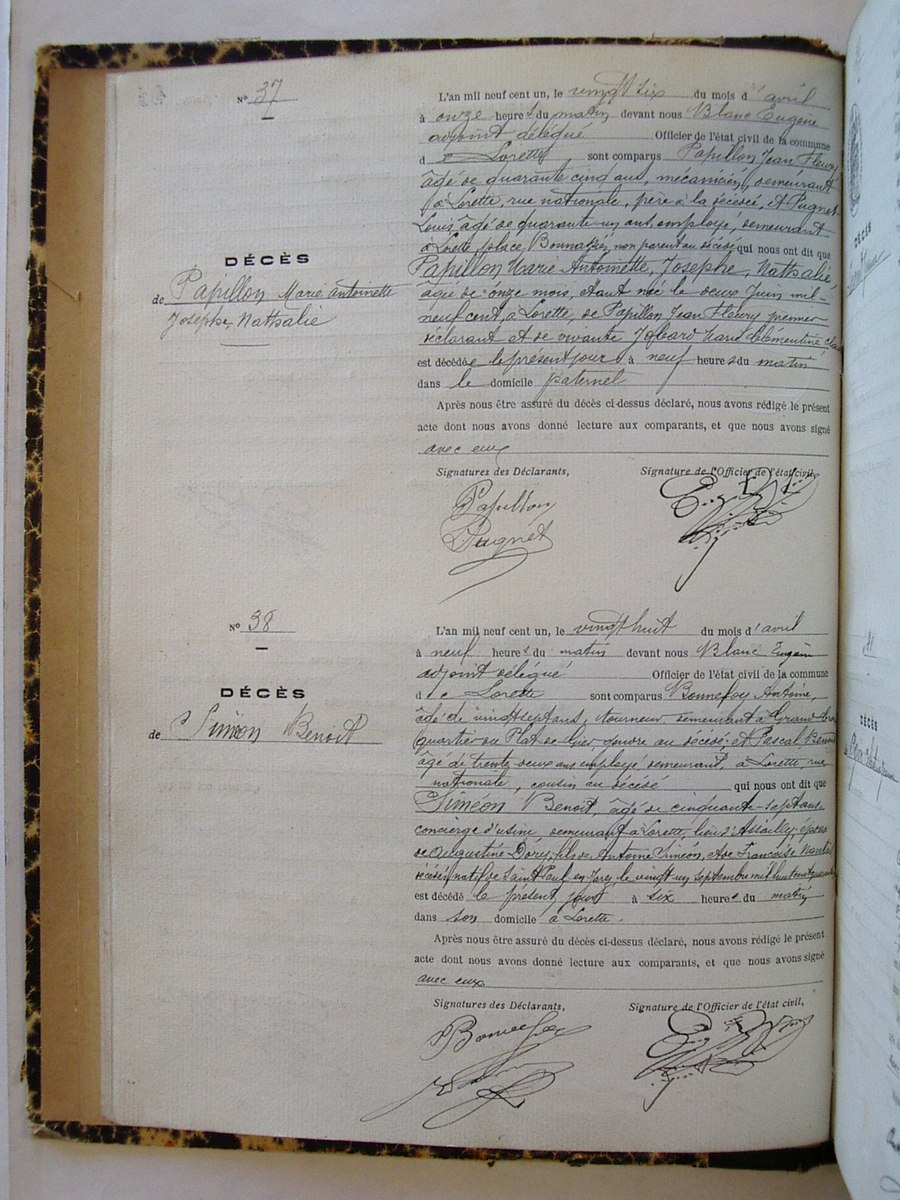 Nº 37
DÉCÈS
de Papillon Marie Antoinette
Josephe, Nathalie
L'an mil neuf cent un, le vingt six du mois d'avril
à onze heures du matin devant nous Blanc Eugène
adjoint délégué Officier de l'état civil de la commune
de Lorette sont comparus Papillon Jean Fleury
âgé de quarante cinq ans, mécanicien, demeurant
à Lorette, rue nationale, père à la décédée, et Pugnet
Louis, âgé de quarante un ans, employé, demeurant
à Lorette, place non parent au décédé qui nous ont dit que
Papillon Marie Antoinette, Josephe, Nathalie,
âgée de onze mois, étant née le deux Juin mil
neuf cent, à Lorette, de Papillon Jean Fleury premier
déclarant et de vivante Marie Clémentine
est décédée le présent jour à neuf heures du matin
dans le domicile paternel
Après nous être assuré du décès ci-dessus déclaré, nous avons rédigé le présent
acte dont nous avons donné lecture aux comparants, et que nous avons signé
avec eux
Signatures des Déclarants, Signature de l'Officier de l'état civil,
Papillon
Pugnet
Nº 38
DÉCÈS
de Siméon Benoit
L'an mil neuf cent un, le vingt huit du mois d'avril
à neuf heures du matin devant nous Blanc Eugène
adjoint délégué Officier de l'état civil de la commune
de Lorette sont comparus Bonnefoy Antoine,
âgé de vingt sept ans, tourneur demeurant à Grand-Croix
quartier du Plat-de-Gier, gendre au décédé; et Pascal Benoit
âgé de trente deux ans employé demeurant, à Lorette, rue
nationale, cousin au décédé qui nous ont dit que
Siméon Benoit, âgé de cinquante-sept ans
concierge d'usine, demeurant à Lorette, lieu d'Assailly, époux
de Augustine Dory, fils de Antoine Siméon, et de Françoise
décédés, natif de Saint Paul en Jarez, le vingt un septembre mil huit cent
est décédé le présent jour à six heures du matin
dans son domicile à Lorette.
Après nous être assuré du décès ci-dessus déclaré, nous avons rédigé le présent
acte dont nous avons donné lecture aux comparants, et que nous avons signé
avec eux
Signatures des Déclarants, Signature de l'Officier de l'état civil,
Bonnefoy
DÉCÈS
DÉCÈS